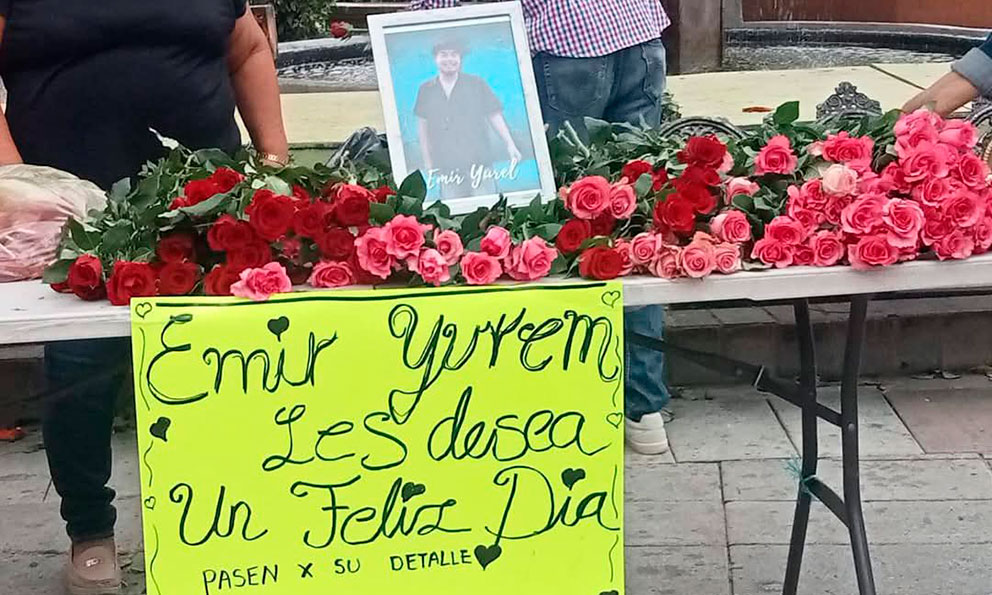 Emir Yurel
Emir Yurem
Les desea
Un Feliz Dia
PASEN X SU DETALLE